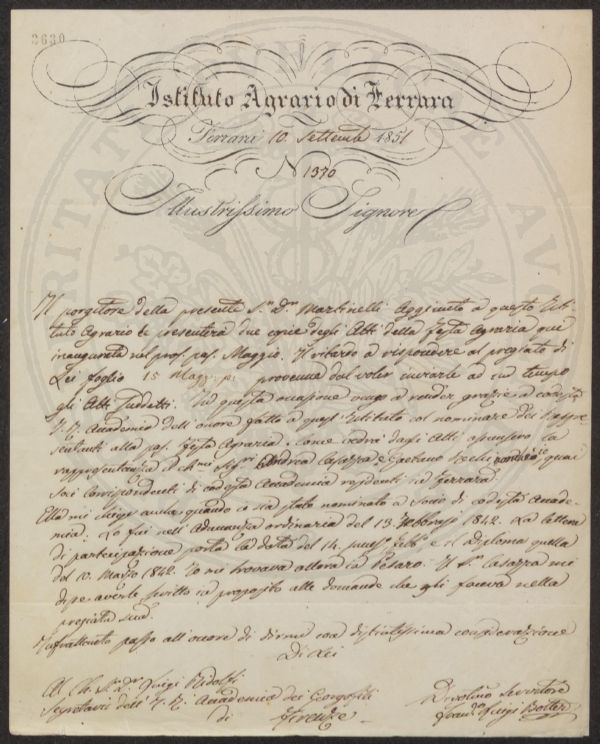 2630
Istituto Agrario di Ferrara
Ferrara 10 Settembre 1851
N 1370
Illustrissimo Signore
Il porgitore della presente S.r D.r Martinelli Aggiunto a questo Isti-
tuto Agrario le presenterà due copie degli Atti della Festa Agraria qui
inaugurata nel pros. pas. Maggio. Il ritardo a rispondere al pregiato di
Lei foglio 15 Magg. p. provenne dal voler inviarle ad un tempo
gli Atti sudetti. In questa occasione vengo a render grazie a codesta
I. R. Accademia dell'onore fatto a quest'Istituto col nominare dei Rappre-
sentanti alla pas. Festa Agraria, e come vedrà dagli Atti assunsero la
rappresentanza il ch.mo Sig.ri Andrea Casazza e Gaetano quai
Soci Corrispondenti di codesta Accademia residenti in Ferrara.
Ella mi chiese anche quando io sia stato nominato a Socio di codesta Accade-
mia. Lo fui nell'Adunanza ordinaria del 13 Febbraio 1842. La lettera
di partecipazione porta la data del 14. Febb.o e il Diploma quella
del 10. Marzo 1842. Io mi trovava allora in Pesaro. Il S.r Casazza mi
disse averle scritto in proposito alle domande che gli faceva nella
pregiata sua.
Infrattanto passo all'onore di dirmi con distintissima considerazione
Di Lei
Al Ch. S.r D.r Luigi Ridolfi
Segretario dell'I. R. Accademia dei Georgofili
di Firenze
Devotissimo Servitore
Fran.co Luigi Botter